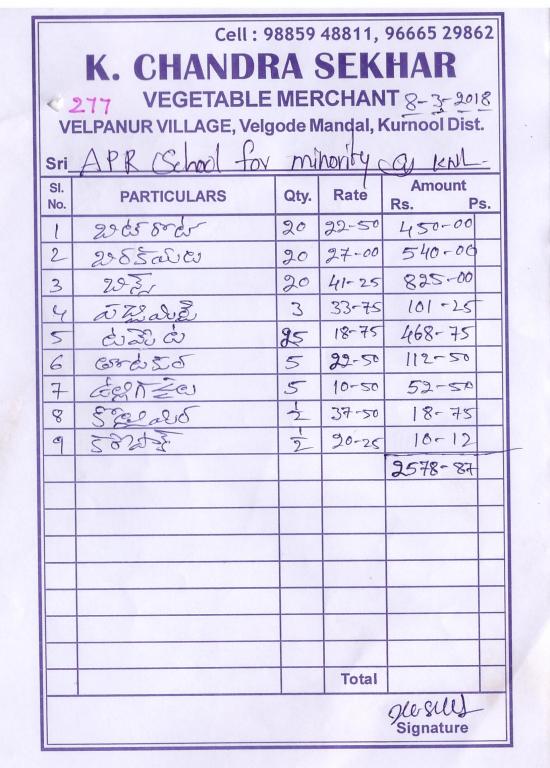 Cell : 98859 48811, 96665 29862
K. CHANDRA SEKHAR
277 VEGETABLE MERCHANT 8-3-2018
VELPANUR VILLAGE, Velgode Mandal, Kurnool Dist.
Sri APR School for minority G KNL
Sl. No. PARTICULARS Qty. Rate Amount Rs. Ps.
1 బీట్‌రూట్ 20 22-50 450-00
2 బీరకాయలు 20 27-00 540-00
3 బీన్స్ 20 41-25 825-00
4 పచ్చిమిర్చి 3 33-75 101-25
5 టమోట 25 18-75 468-75
6 తోటకూర 5 22-50 112-50
7 ఉల్లిగడ్డలు 5 10-50 52-50
8 కొత్తిమీర ½ 37-50 18-75
9 కరేపాక్ ½ 20-25 10-12
2578-87
Total
Signature